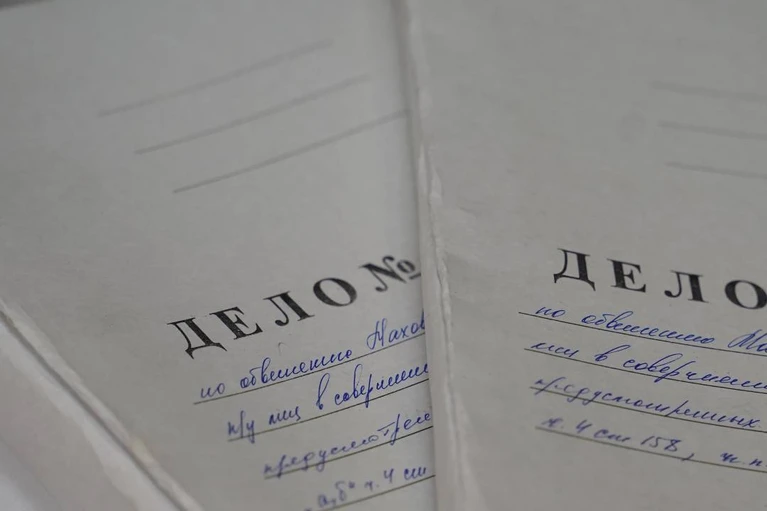 ДЕЛО №
по обвинению Махов
и/у лиц в совершении
предусмотрен
а,б" ч. 4 ст
ДЕЛО
по обвинению Ма
лиц в совершении
предусмотренных
ч. 4 ст 158, ч.